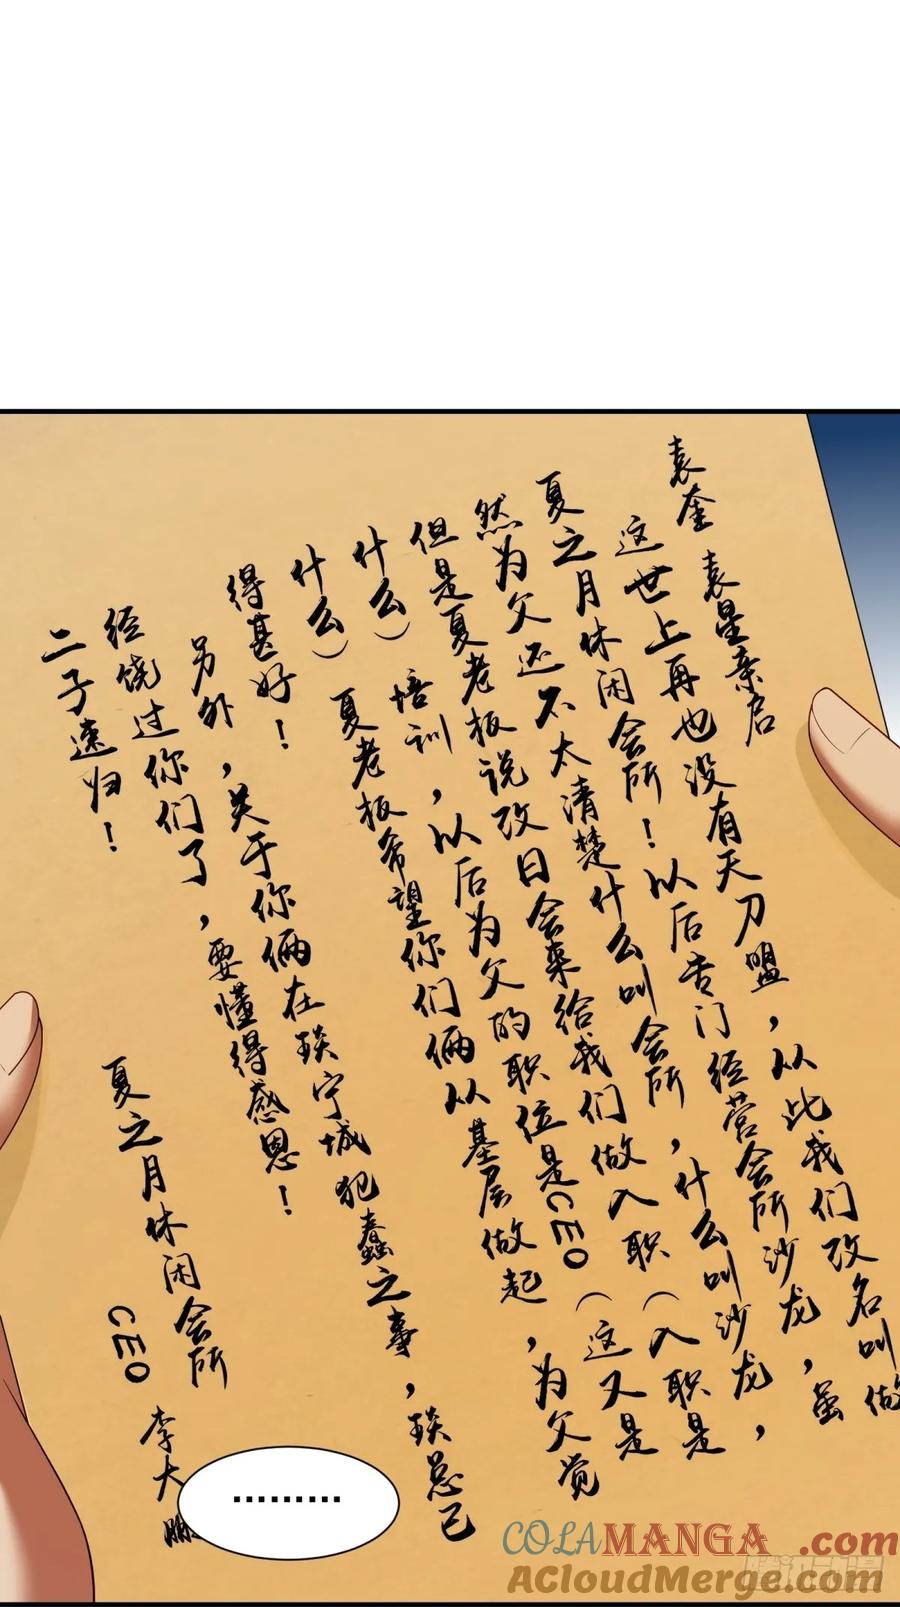 袁奎 袁星亲启
这世上再也没有天刀盟，从此我们改名叫做
夏之月休闲会所！以后告门经营会所沙龙，虽
然为父还不太清楚什么叫会所，什么叫沙龙，
但是夏老板说改日会来给我们做入职（入职是
什么）培训，以后为父的职位是CEO（这又是
什么）夏老板希望你们俩从基层做起，为父觉
得甚好！
另外，关于你俩在琰宁城犯蠢之事，琰总已
经饶过你们了，要懂得感恩！
二子速归！
夏之月休闲会所
CEO 李大
.........
COLAMANGA.com
ACloudMerge.com
腾讯动漫